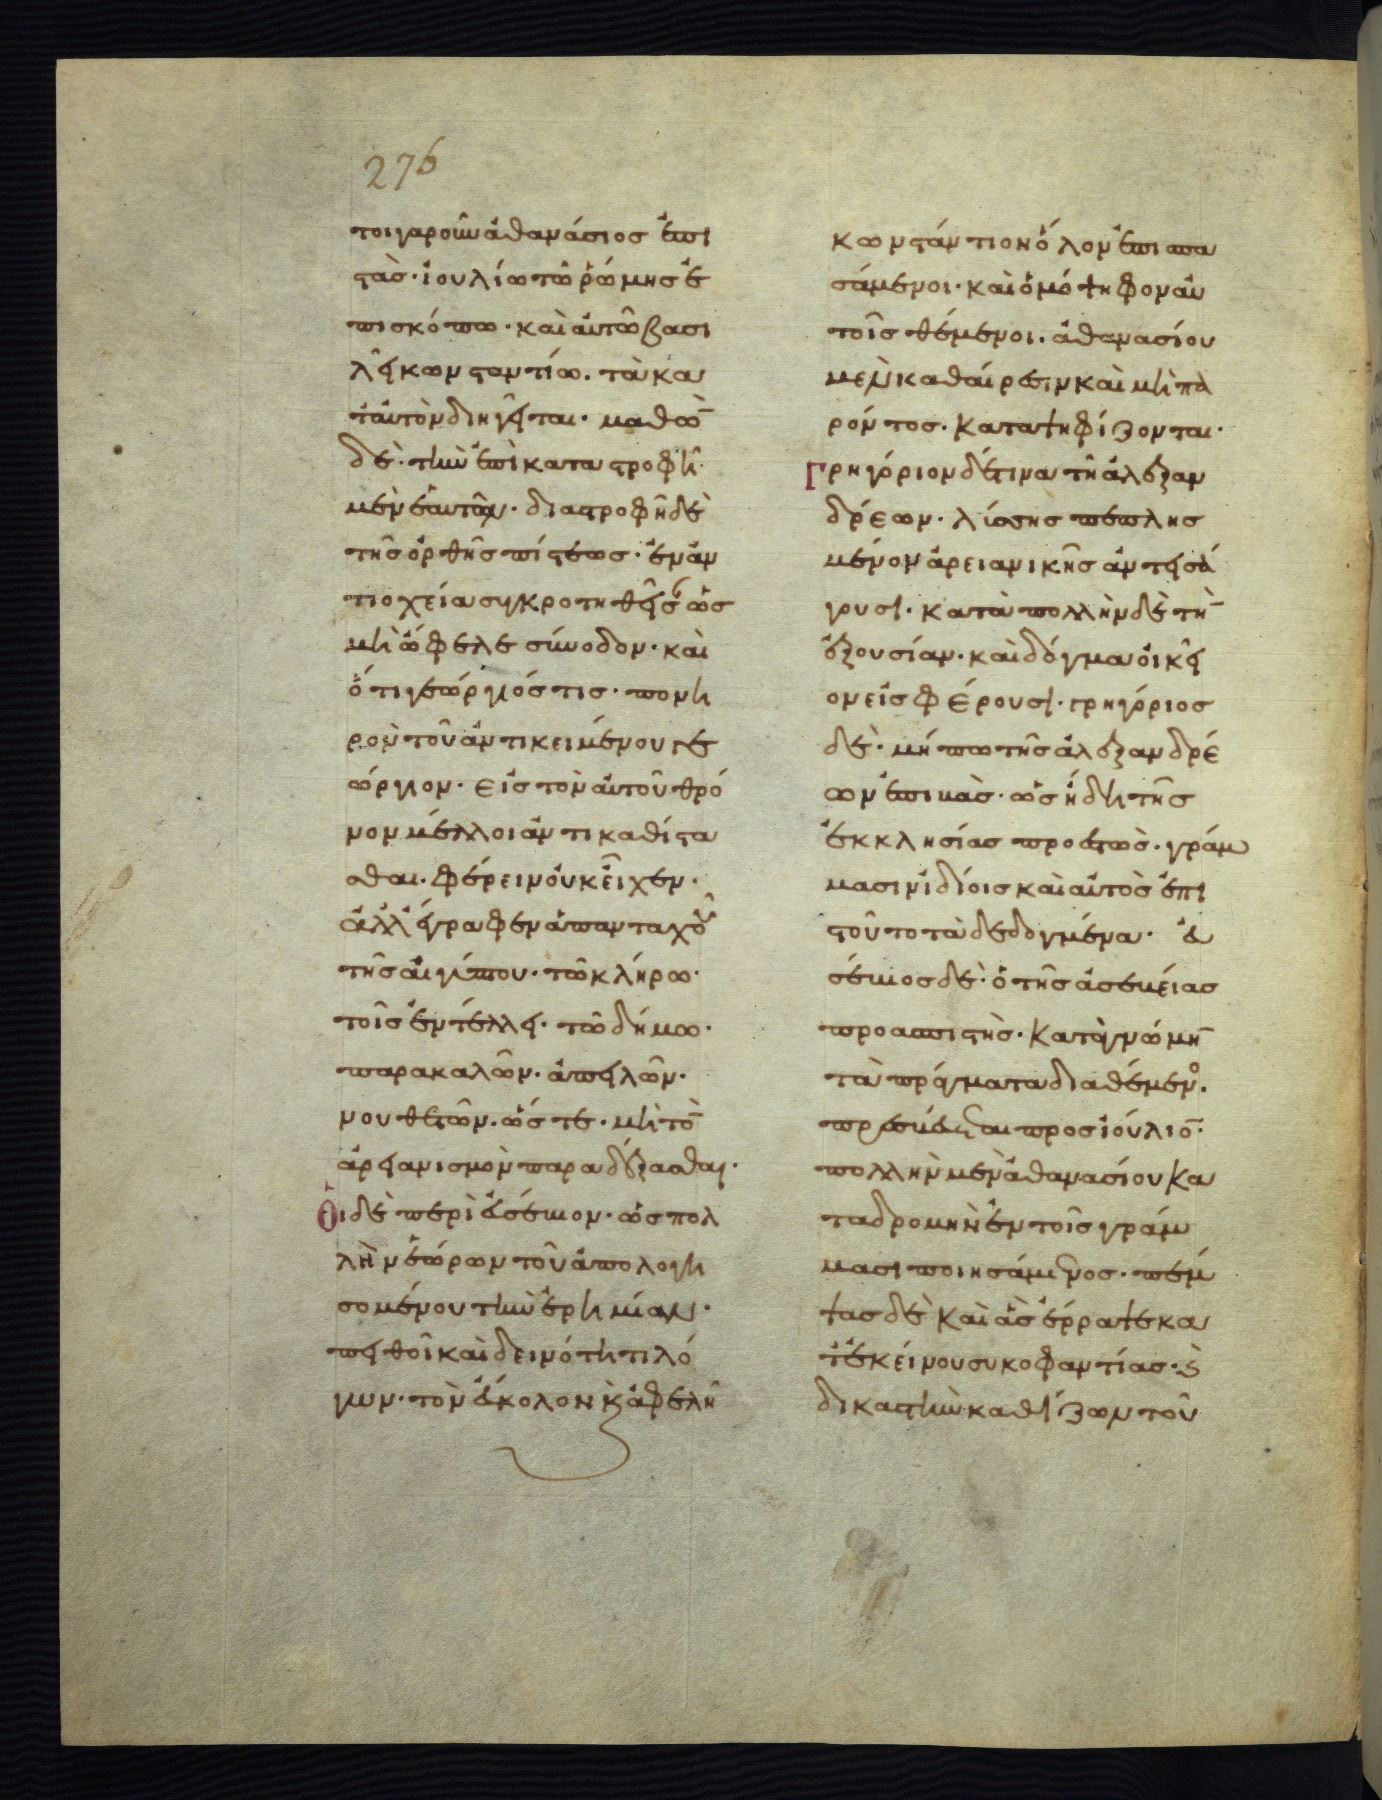 276
τοιγαροῦν ἀθανάσιος ἐπι
στὰς· ἰουλίω τῶ ῥώμης ἐ
πισκόπω· καὶ αὐτῶ βασι
λεῖ κωνσταντίω. τὰ κα
τ' αὐτὸν διηγεῖται· μαθὼ̅
δὲ· τὴν ἐπὶ καταστροφῆ·
μὲν ἑαυτῶν· διαστροφῆ δὲ
τῆς ὀρθῆς πίστεως· ἐν ἀν
τιοχεία συγκροτηθεῖσ ὡς
μὴ ὤφελε σύνοδον· καὶ
ὅτι γεώργιός τις· πονη
ρὸν τοῦ ἀντικειμένου γε
ώργιον· εἰς τὸν αὐτοῦ θρό
νον μέλλοι ἀντικαθίστα
σθαι. φέρειν οὐκ εἶχεν·
ἀλλ' ἔγραφεν ἁπανταχοῦ
τῆς αἰγύπτου· τῶ κλήρω·
τοῖς ἐν τέλλει· τῶ δήμω·
παρακαλῶν. ἀπειλῶν·
νουθετῶν. ὥστε· μὴ τὸ̅
ἀρειανισμὸν παραδέξασθαι·
Οἱ δὲ περὶ εὐσέβιον· ὡς πολ
λὴν ἑώρων τοῦ ἀπολογη
σομένου τὴν ἐρημίαν·
πειθοῖ καὶ δεινότητι λό
γων· τὸν εὔκολον κ̀ ἀφελῆ
κωνστάντιον ὅλον ἐπισπα
σάμενοι· καὶ ὁμόψηφον αὑ
τοῖς θέμενοι. ἀθανασίου
μὲν καθαίρεσιν καὶ μὴ πα
ρόντος. καταψηφίζονται·
Γρηγόριον δέ τινα τῆ ἀλεξαν
δρέων· λύσσης πεπλης
μένον ἀρειανικῆς ἀντεισά
γουσι· κατὰ πολλὴν δὲ τὴ̅
ἐξουσίαν· καὶ δόγμα οἰκεῖ
ον εἰσφέρουσι· γρηγόριος
δὲ· μήπω τῆς ἀλεξανδρέ
ων ἐπιβὰς· ὡς ἤδη τῆς
ἐκκλησίας προεστὼς· γράμ
μασιν ἰδίοις καὶ αὐτὸς ἐπι
στοῦτο τὰ δεδογμένα· εὐ
σέβιος δὲ· ὁ τῆς ἀσεβείας
προασπιστὴς· κατὰ γνώμη̅
τὰ πράγματα διαθέμενο.
πρεσβεύεται προς ἰούλιο̅·
πολλὴν μὲν ἀθανασίου κα
ταδρομὴν ἐν τοῖς γράμ
μασι ποιησάμενος· πέμ
ψας δὲ καὶ ἃς ἔρραψε κα
τ' ἐκείνου συκοφαντίας· κ̀
δικαστὴν καθίζων τοῦ